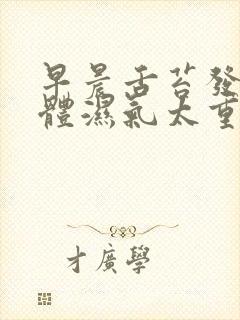 早晨舌苔發
體濕氣太重
才廣學